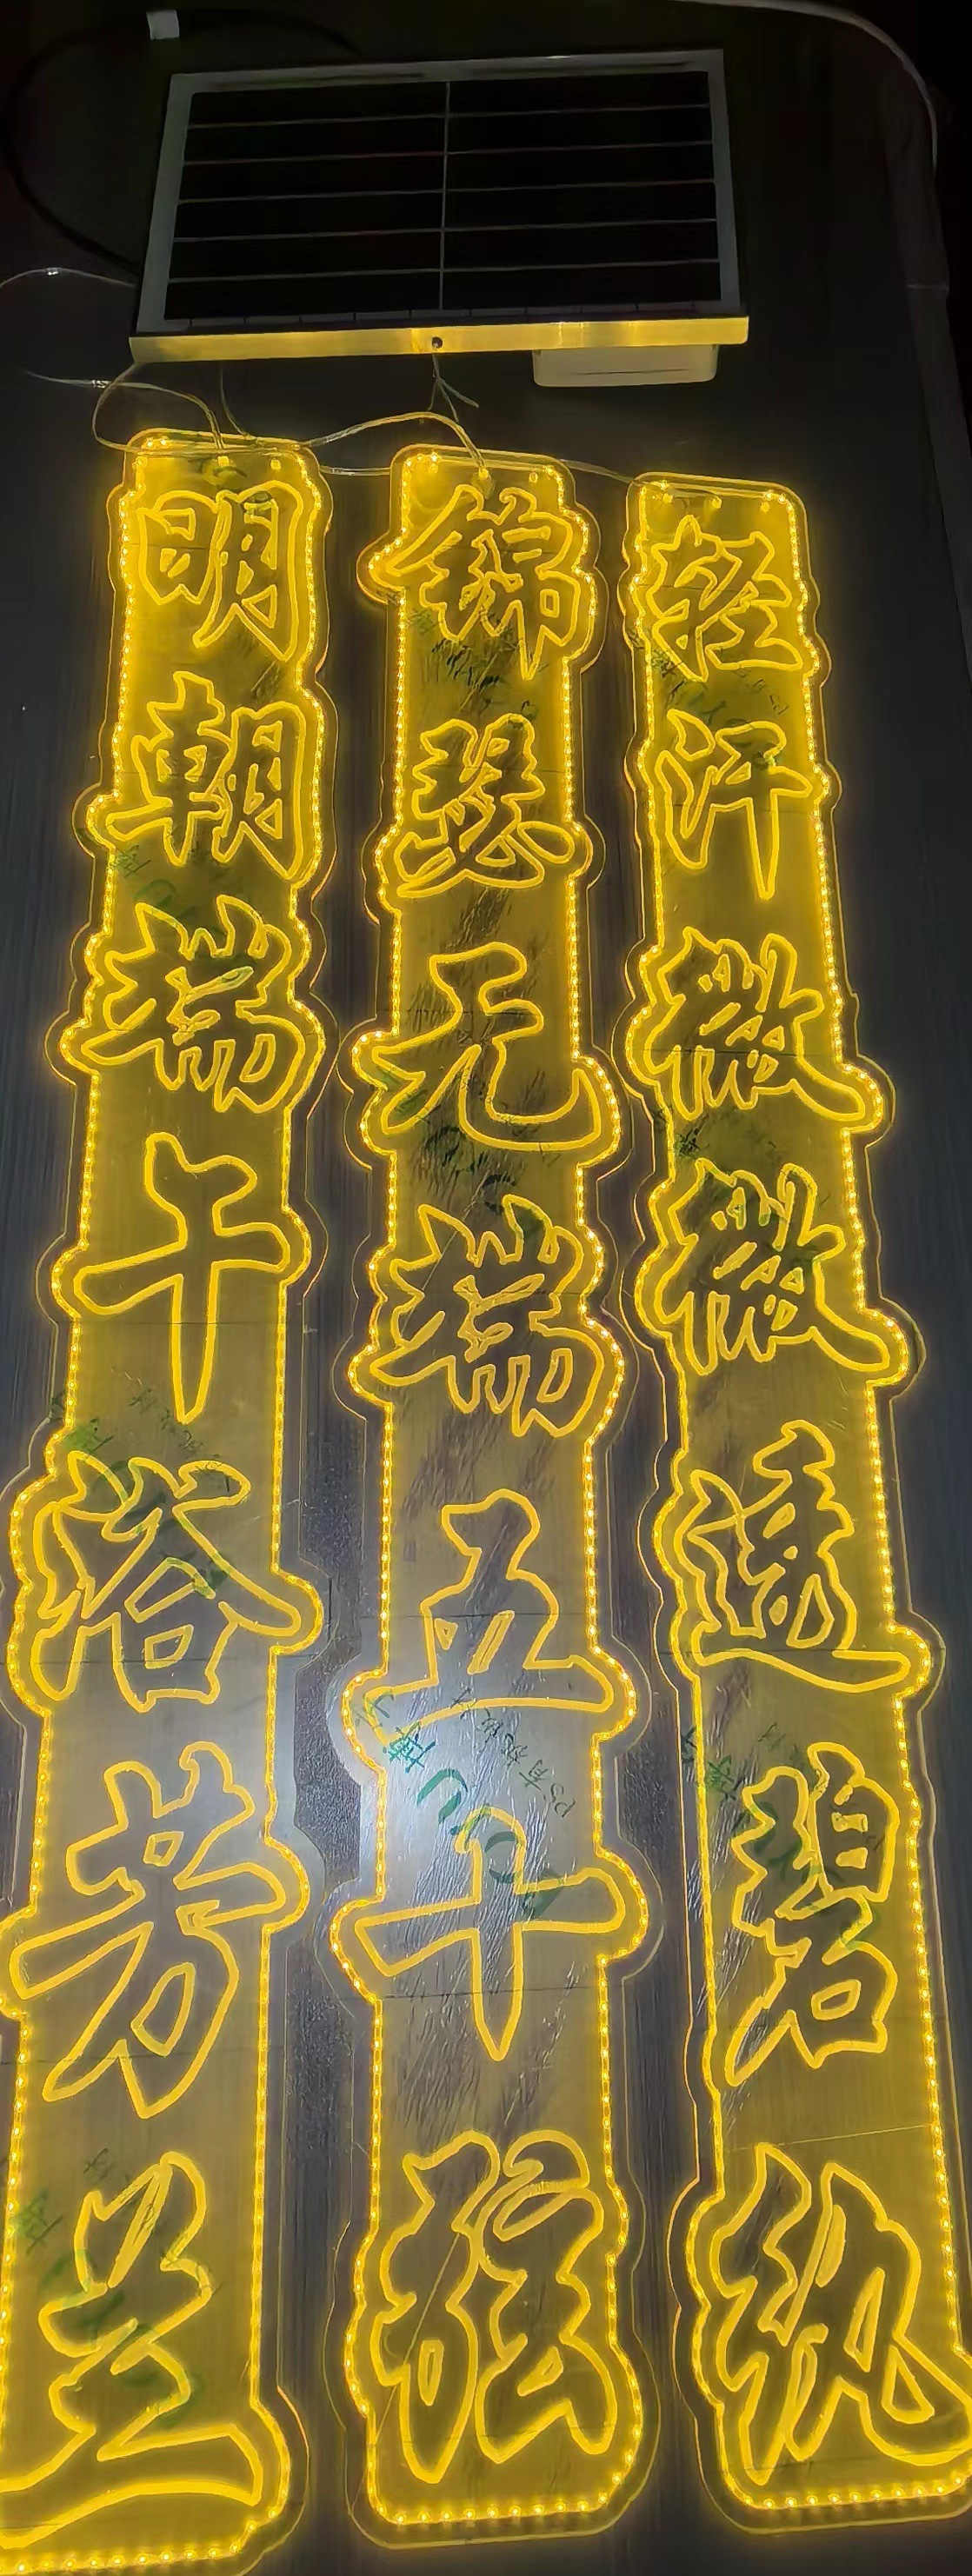 轻汗微微透碧纨
锦瑟无端五十弦
明朝端午浴芳兰